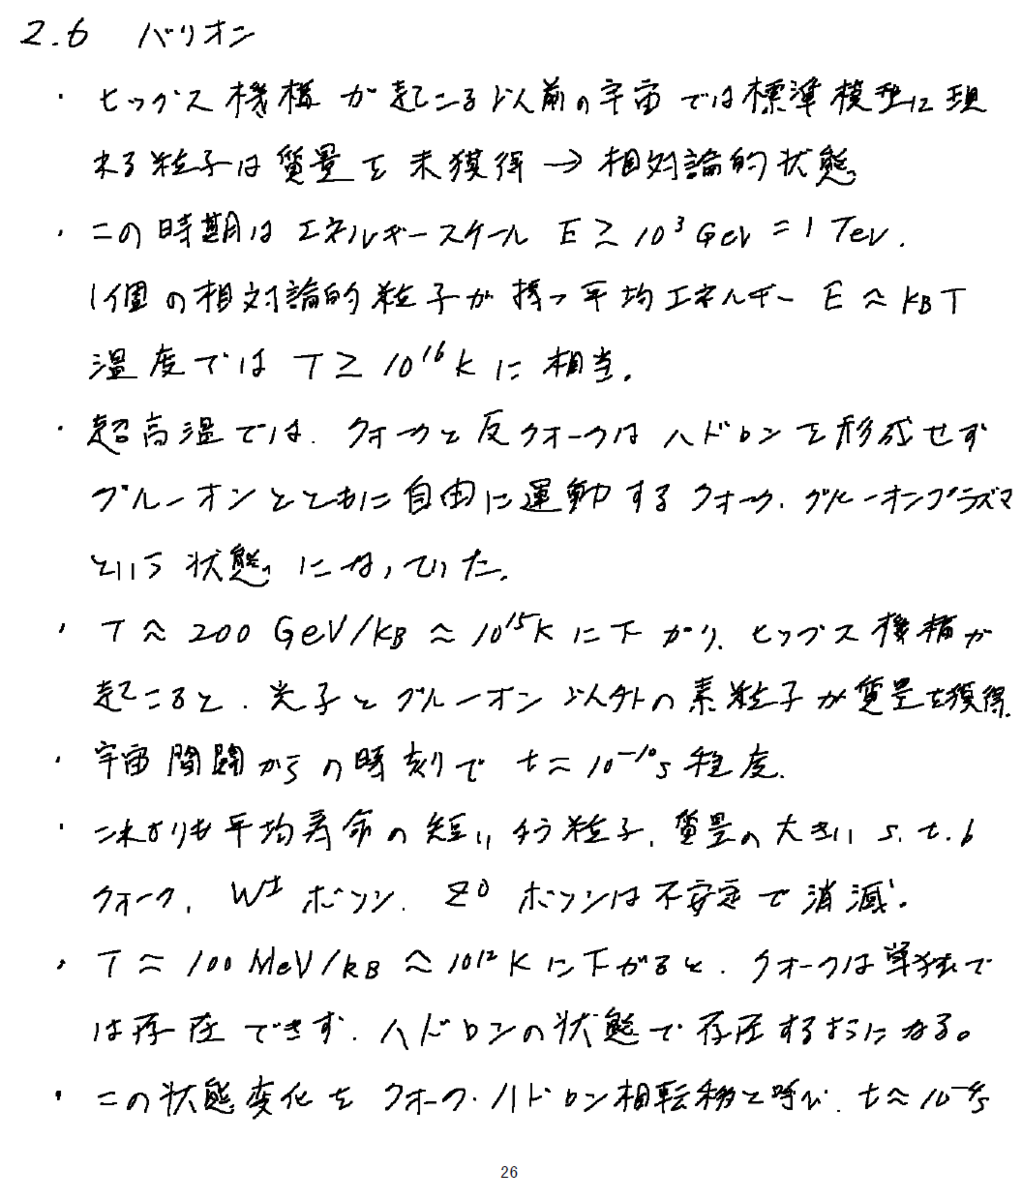 2.6 バリオン
・ヒッグス機構が起こる以前の宇宙では標準模型に現
れる粒子は質量を未獲得→相対論的状態
・この時期はエネルギースケール E≳10³GeV=1TeV.
1個の相対論的粒子が持つ平均エネルギー E≈kBT
温度では T≳10¹⁶Kに相当.
・超高温では、クォークと反クォークはハドロンを形成せず
グルーオンとともに自由に運動するクォーク・グルーオンプラズマ
という状態になっていた.
・T≈200 GeV/kB≈10¹⁵Kに下がり、ヒッグス機構が
起こると、光子とグルーオン以外の素粒子が質量を獲得.
・宇宙開闢からの時刻で t≈10⁻¹⁰s程度.
・これよりも平均寿命の短い素粒子、質量の大きい s.t.b
クォーク、W±ボソン、Z⁰ボソンは不安定で消滅.
・T≈100 MeV/kB≈10¹²Kに下がると、クォークは単独で
は存在できず、ハドロンの状態で存在するようになる。
・この状態変化をクォーク・ハドロン相転移と呼び、t≈10⁻⁴s
26